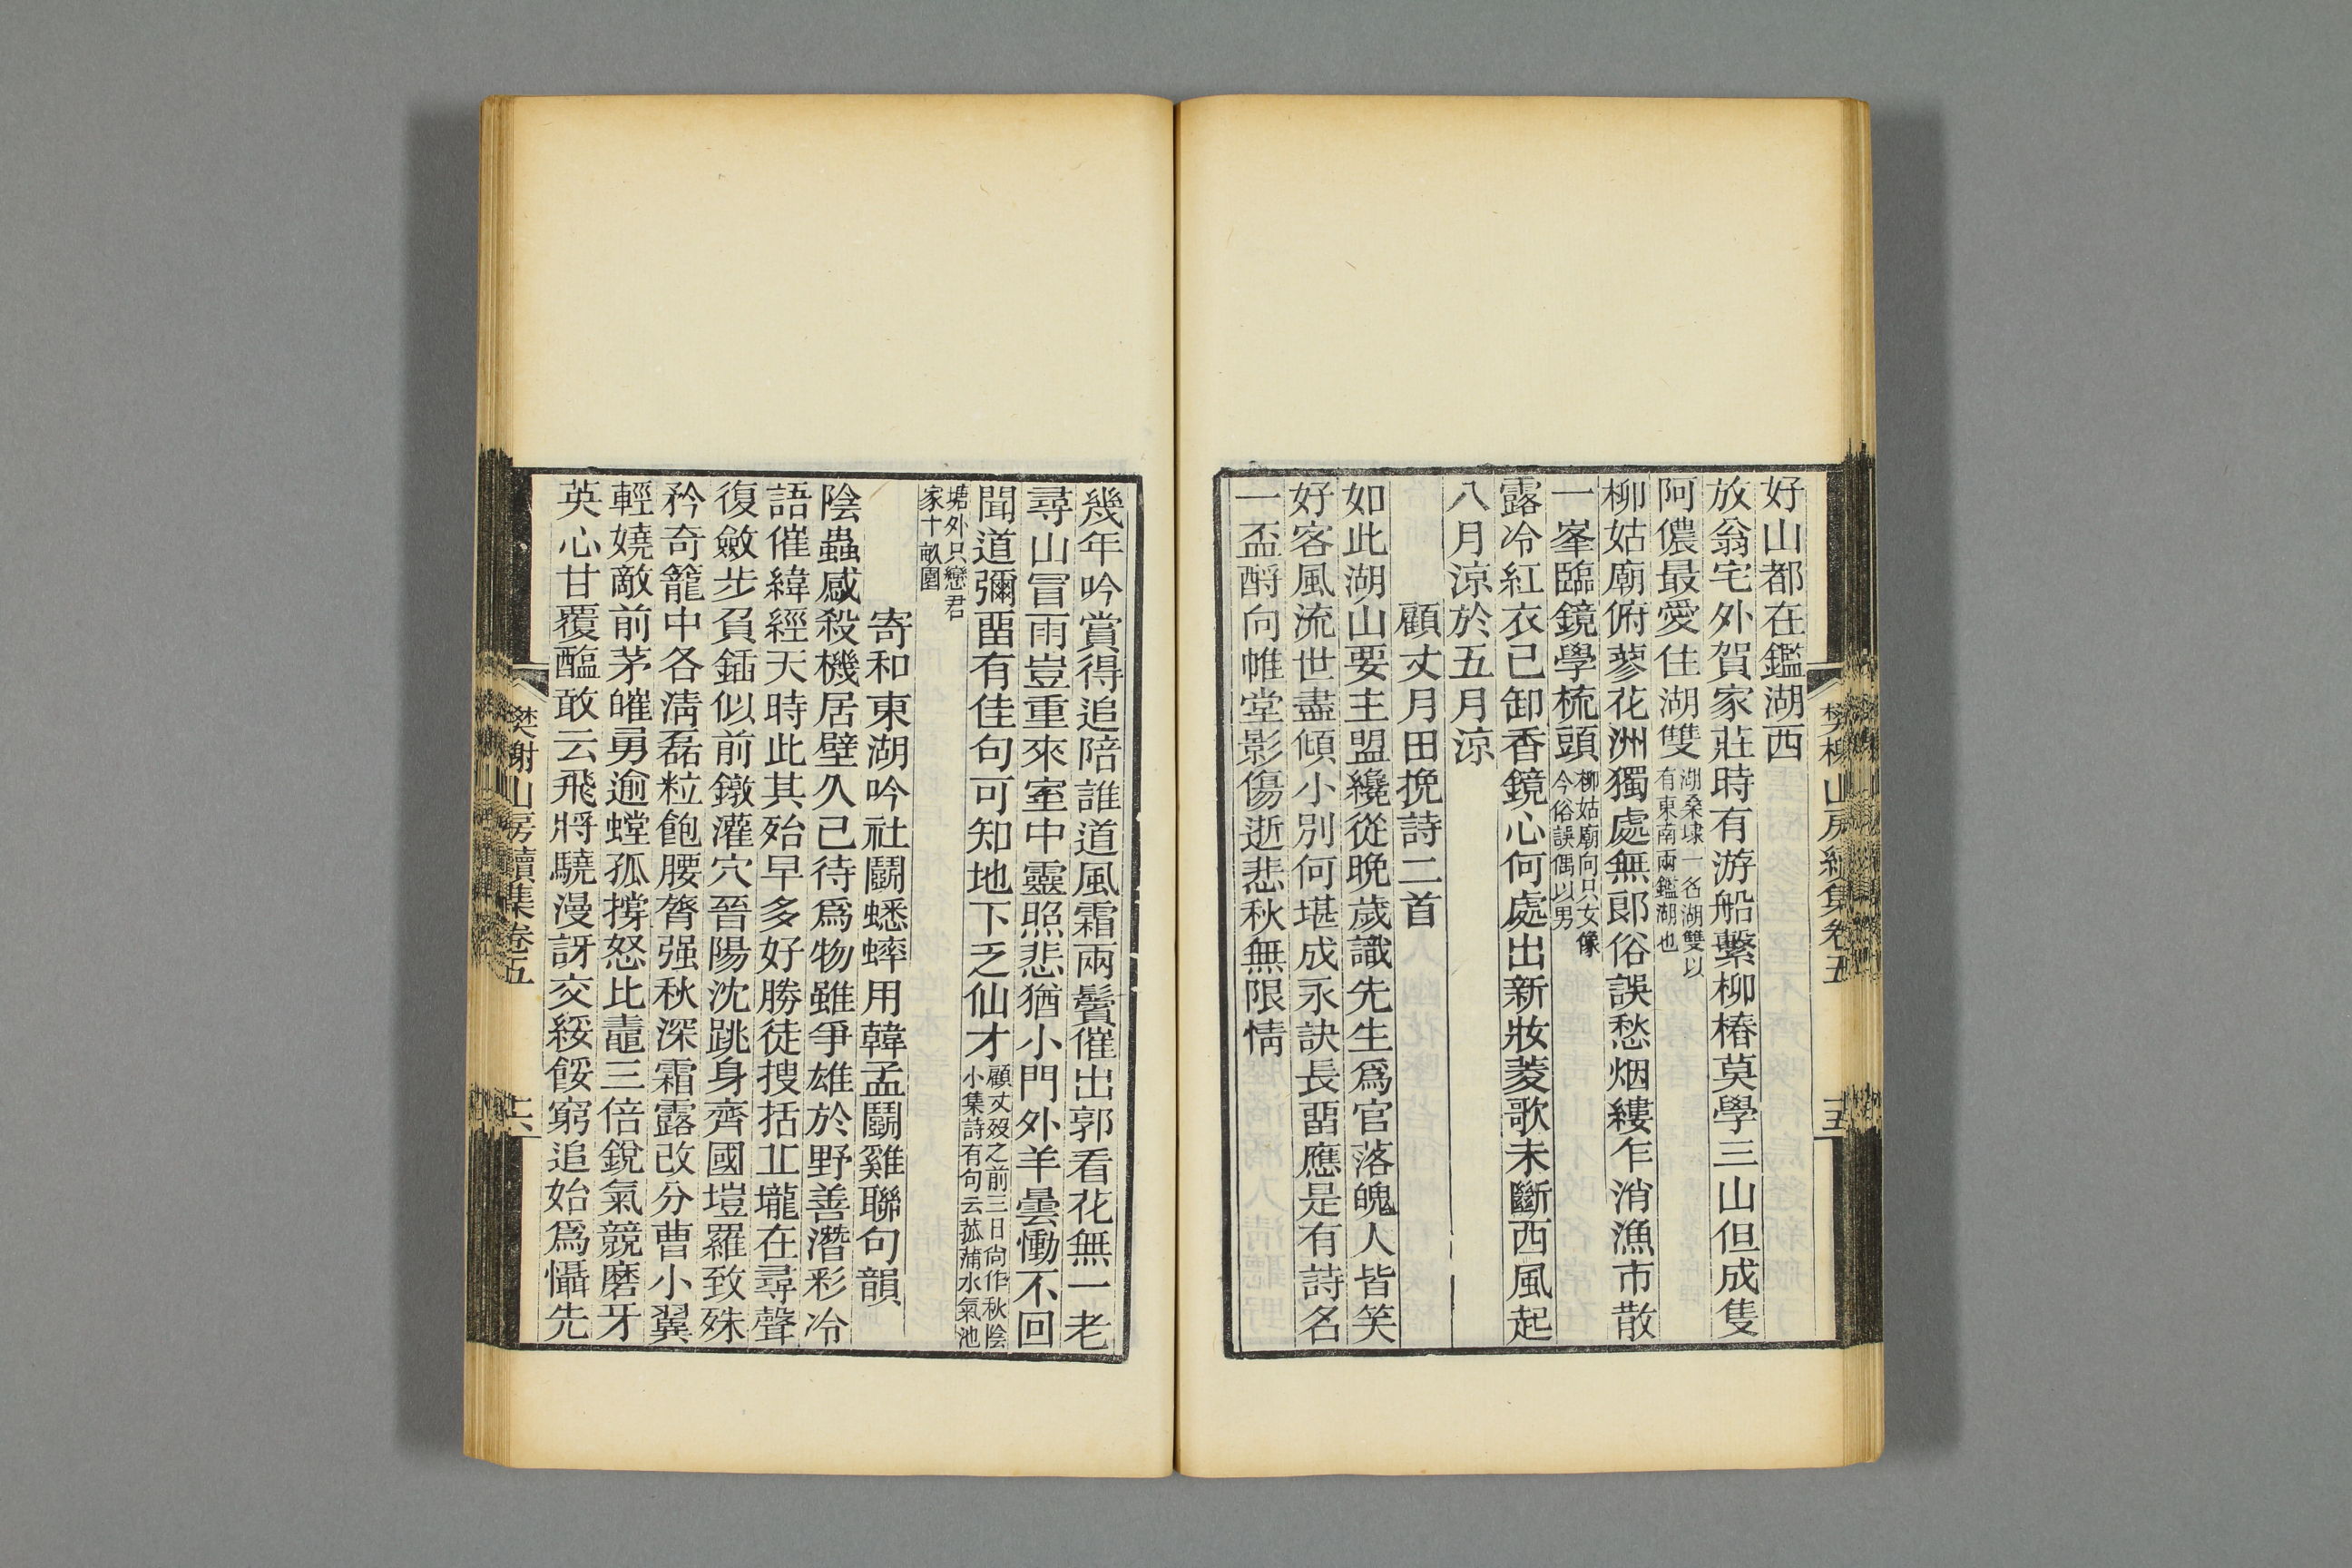 樊榭山房續集卷五
十五
好山都在鑑湖西
放翁宅外賀家莊時有游船繫柳樁莫學三山但成隻
阿儂最愛住湖雙湖桑埭一名湖雙以
有東南兩鑑湖也
柳姑廟俯蓼花洲獨處無郞俗誤愁烟縷乍消漁市散
一峯臨鏡學梳頭柳姑廟向只女像
今俗誤偶以男
露冷紅衣已卸香鏡心何處出新妝菱歌未斷西風起
八月涼於五月涼
顧丈月田挽詩二首
如此湖山要主盟纔從晚歲識先生爲官落魄人皆笑
好客風流世盡傾小別何堪成永訣長畱應是有詩名
一盃酹向帷堂影傷逝悲秋無限情
幾年吟賞得追陪誰道風霜兩鬢催出郭看花無一老
尋山冒雨豈重來室中靈照悲猶小門外羊曇慟不回
聞道彌畱有佳句可知地下乏仙才顧丈歿之前三日尙作秋陰
小集詩有句云菰蒲水氣池
塘外只戀君
家十畝園
寄和東湖吟社鬭蟋蟀用韓孟鬭雞聯句韻
陰蟲感殺機居壁久已待爲物雖爭雄於野善潛彩冷
語催緯經天時此其殆早多好勝徒捜括丠壠在尋聲
復斂步負鍤似前鐓灌穴晉陽沈跳身齊國塏羅致殊
矜奇籠中各淸磊粒飽腰膂强秋深霜露改分曹小翼
輕嬈敵前茅皠勇逾螳孤撐怒比鼃三倍銳氣競磨牙
英心甘覆醢敢云飛將驍漫訝交綏餒窮追始爲懾先
樊榭山房續集卷五
十六